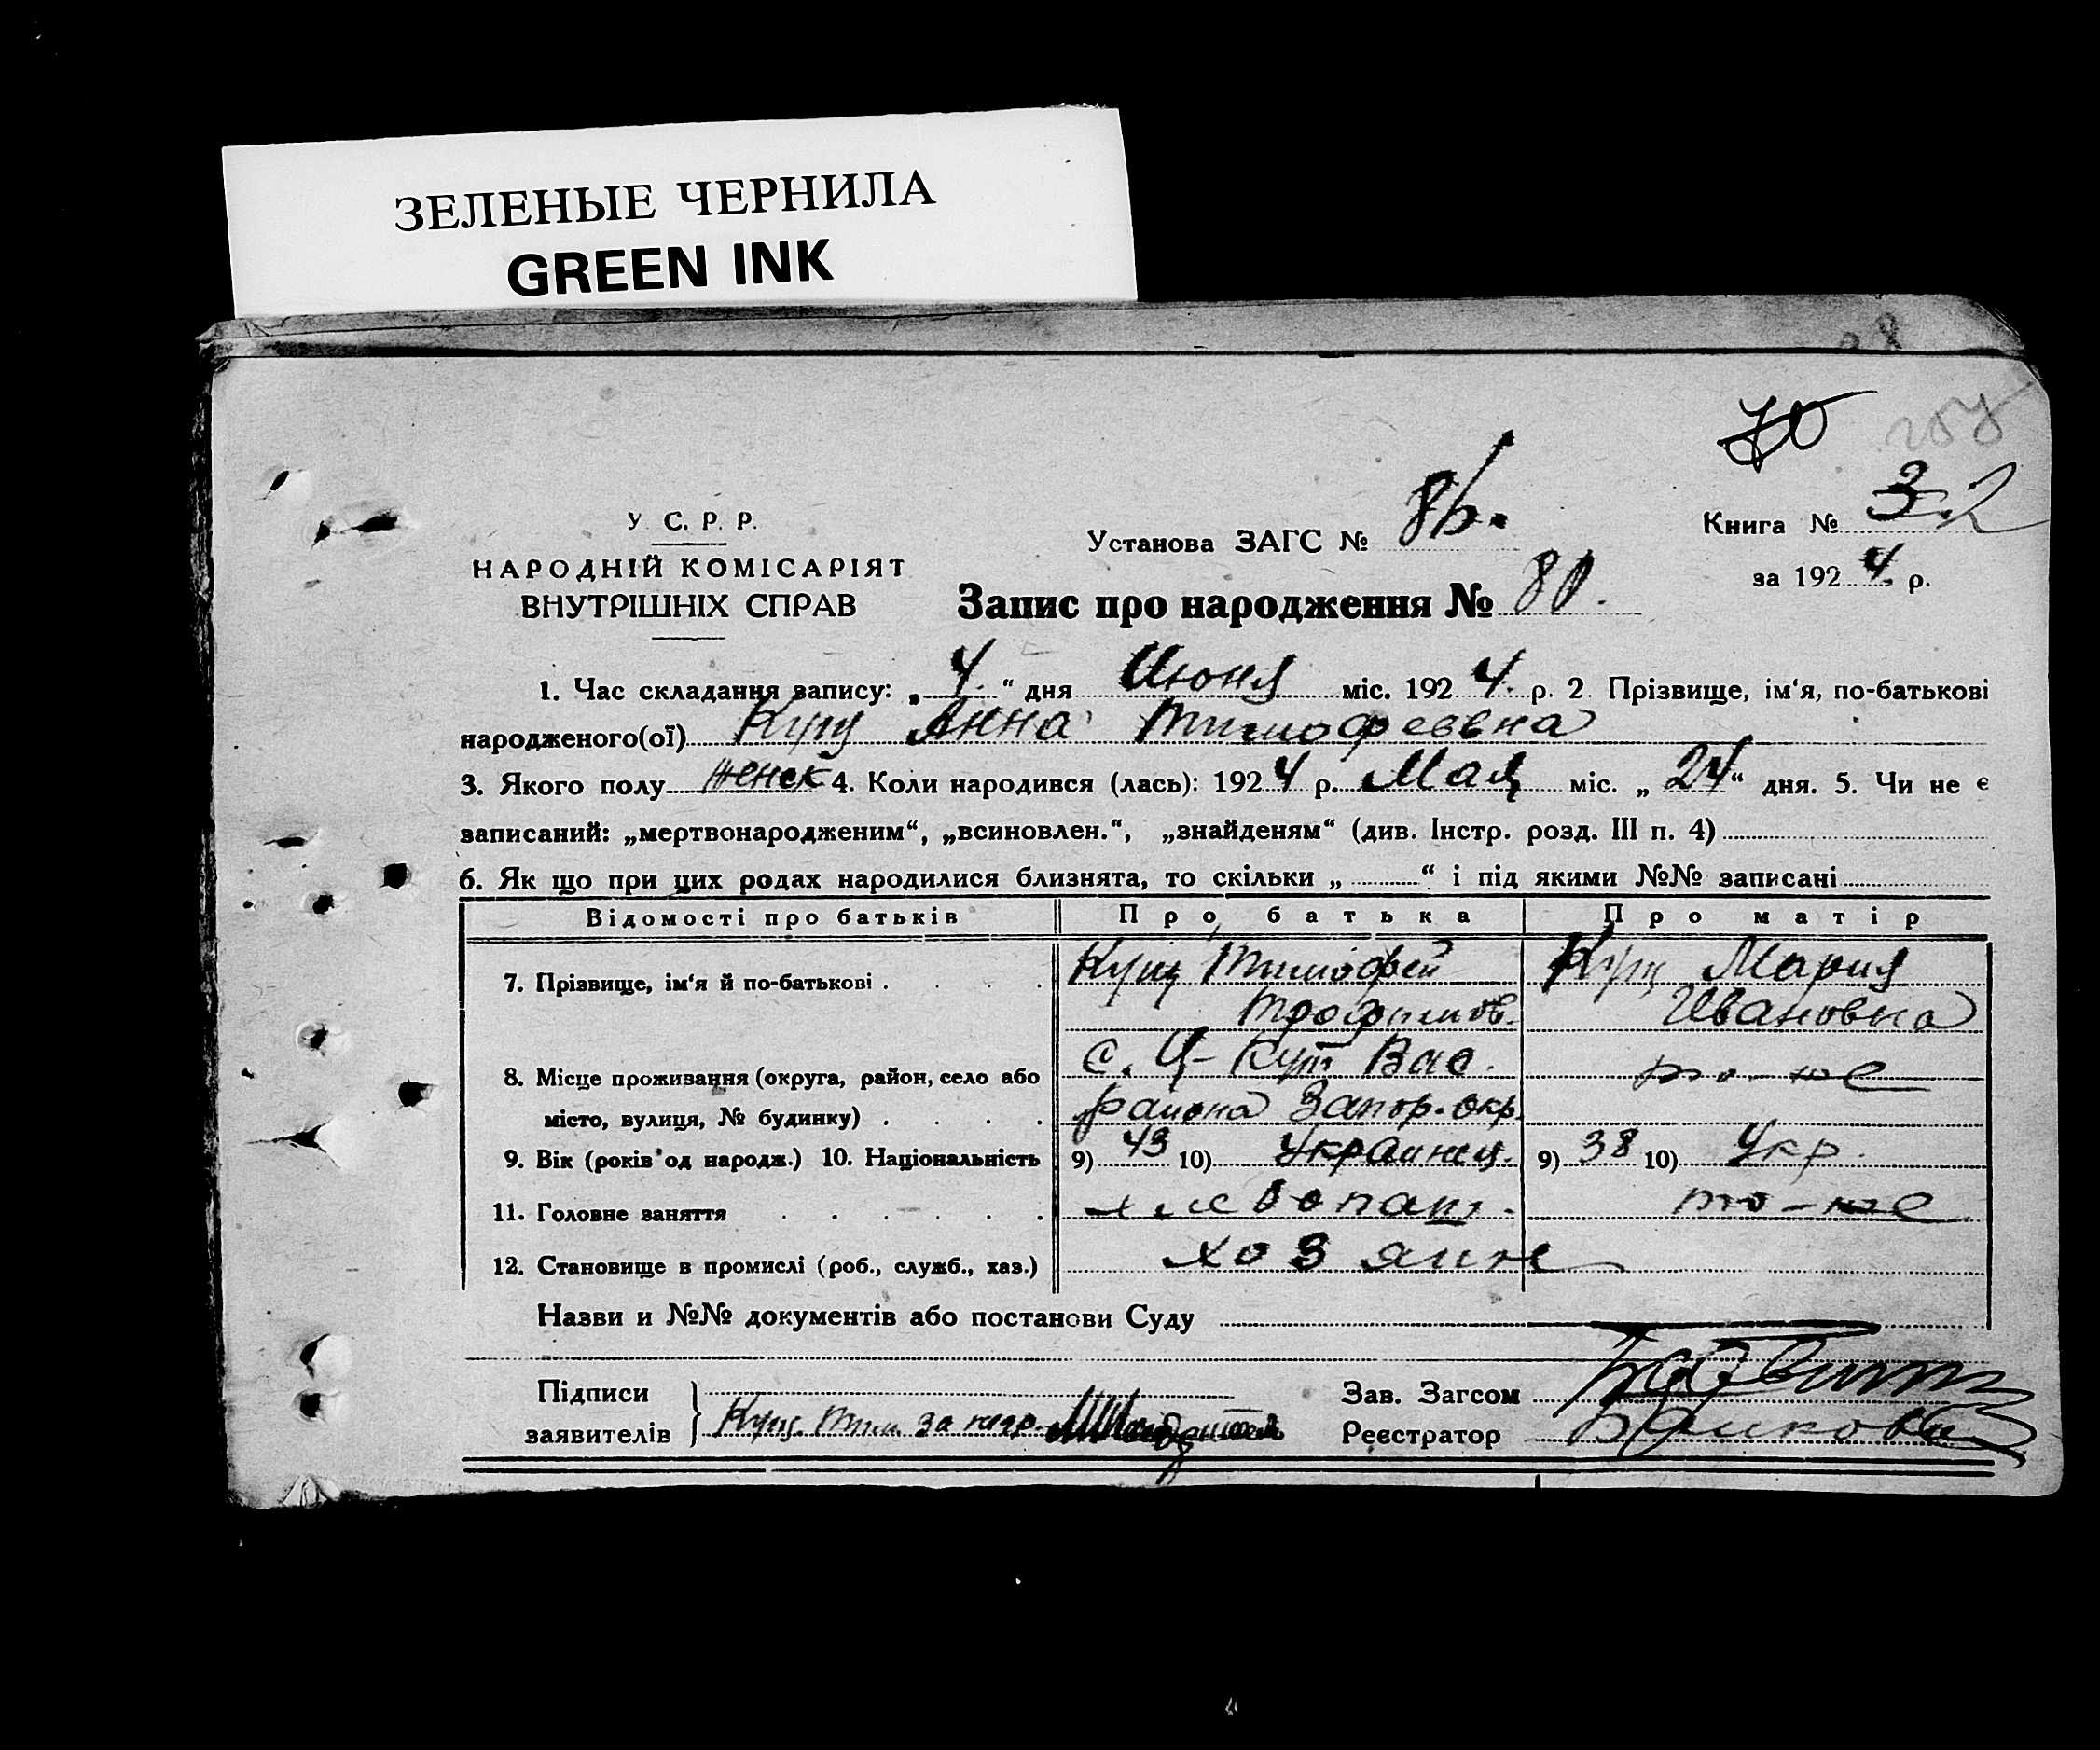 ЗЕЛЕНЫЕ ЧЕРНИЛА
GREEN INK
28
70
У. С. Р. Р.
НАРОДНІЙ КОМІСАРІЯТ
ВНУТРІШНІХ СПРАВ
Установа ЗАГС № 86.
Книга № 3.2
за 1924 р.
Запис про народження № 80.
1. Час складання запису: „4.“ дня Июня міс. 1924. р. 2. Прізвище, ім‘я, по-батькові
народженого(ої) Кущ Анна Тимофеевна
3. Якого полу женск 4. Коли народився (лась): 1924 р. Мая міс. „24“ дня. 5. Чи не є
записаний: „мертвонародженим“, „всиновлен.“, „знайденям“ (див. Інстр. розд. III п. 4)
6. Як що при цих родах народилися близнята, то скільки „ “ і під якими №№ записані
Відомості про батьків Про батька Про матір
7. Прізвище, ім‘я й по-батькові . . . . Кущ Тимофей Кущ Мария
Трофимов. Ивановна
с. Ц-Кут Вас. то-же
8. Місце проживання (округа, район, село або
місто, вулиця, № будинку) . . . . района Запор. окр.
9. Вік (років од народж.) 10. Національність 9) 43 10) Украинец. 9) 38 10) Укр.
11. Головне заняття . . . . . . хлебопаш. то-же
12. Становище в промислі (роб., служб., хаз.) хозяин
Назви и №№ документів або постанови Суду
Підписи
заявителів
Кущ. Тим. за негр.
Зав. Загсом
Реєстратор